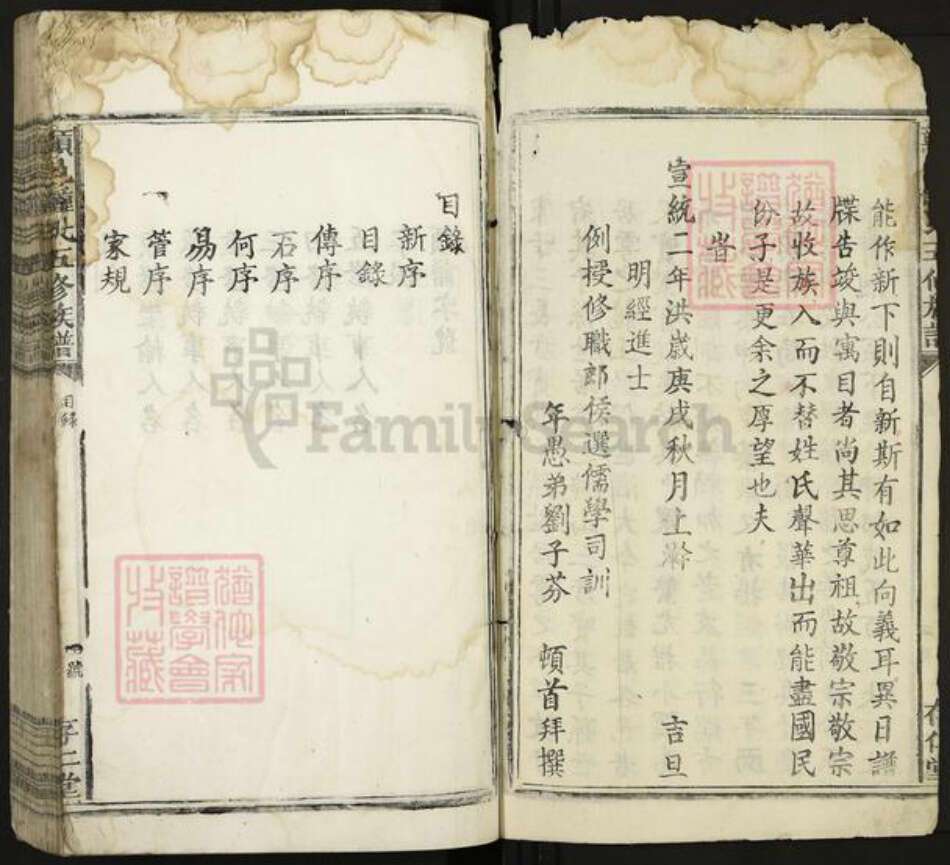 能作新下則自新斯有如此向義耳異日譜
牒告竣與寓目者尚其思尊祖故敬宗敬宗
故收族入而不替姓氏聲華出而能盡國民
份子是更余之厚望也夫
旹
宣統二年洪歲庚戌秋月上澣 吉旦
明經進士
例授修職郎侯選儒學司訓
年愚弟劉子芬 頓首拜撰
目錄
新序
目錄
傳序
石序
何序
易序
管序
家規
五修族譜
目錄
號
存仁堂
FamilySearch
譜學會
收藏